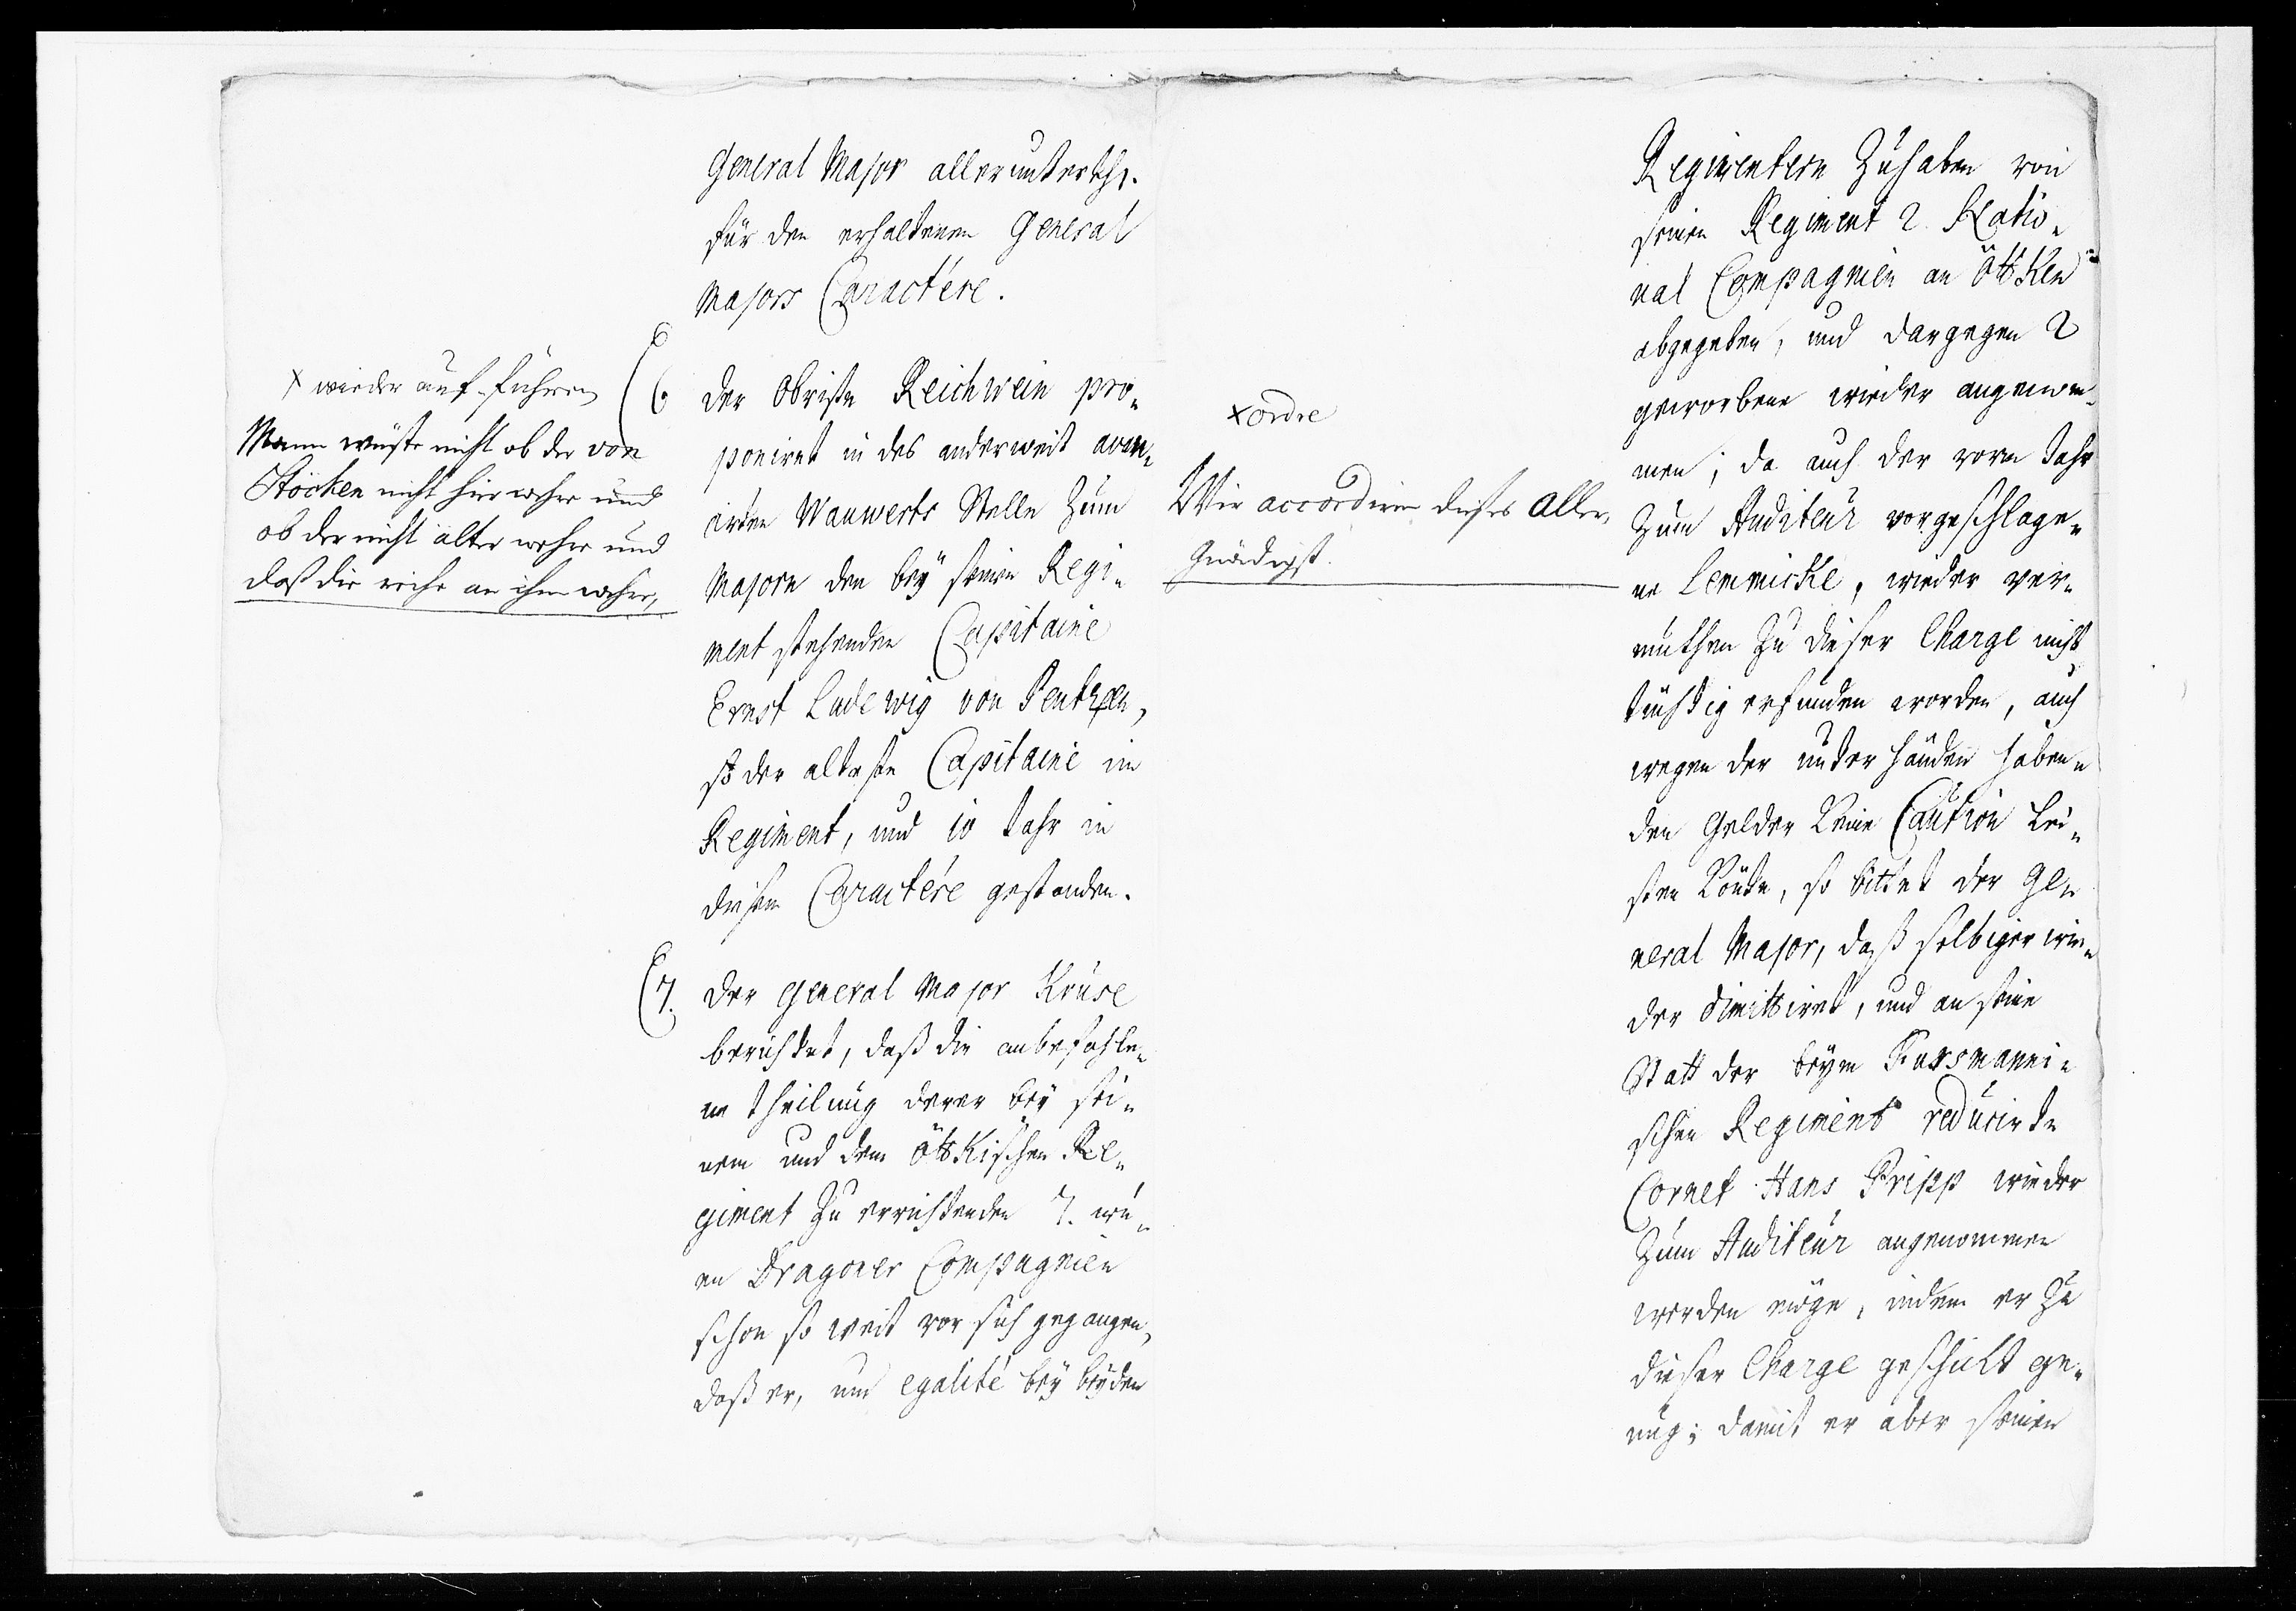 General Major allerunterthst.
für den erhaltenen General
Majors Caractére.
x wieder auf-führen
Mann wüste nicht ob der von
Stöcken nicht hier wehre und
ob der nicht älter wehre und
daß die reihe an ihm wehre,
6. Der Obriste Reichwein pro-
poniret in des anderweit avan-
cirten Wauwerts Stelle zum
Majorn den beÿ seinem Regi-
ment stehenden Capitaine
Ernst Ludewig von Pentzen,
so der alteste Capitaine im
Regiment, und 10 Jahr in
diesem Caractére gestanden.
7. Der General Major Krùse
berichtet, daß die anbefohle-
ne theilung derer beÿ sei-
nem und dem Öttkischen Re-
giment zu errichtenden 7. neu-
en Dragoner Compagnien
schon so weit vor sich gegangen,
daß er, um egalité beÿ beÿden
x ordre
Wir accordiren dieses Aller-
gnädigst.
Regimentern zuhaben von
seinem Regiment 2. Natio-
nal Compagnien an Öttken
abgegeben, und dargegen 2
geworbene wieder angenom-
men; da auch der vorm Jahr
zum Auditeur vorgeschlage-
ne Lemmicke, wieder ver-
muthen zu dieser Charge nicht
tüchtig erfunden worden, auch
wegen der unter händen haben-
den Gelder keine Caution lei-
sten könte, so bittet der Ge-
neral Major, daß selbiger wie-
der dimittiret, und an seine
Statt der beÿm Kursmanni-
schen Regiment reducirte
Cornet Hans Fripp wieder
zum Auditeur angenommen
werden möge, indem er zu
dieser Charge geschickt ge-
nug; damit er aber seinen